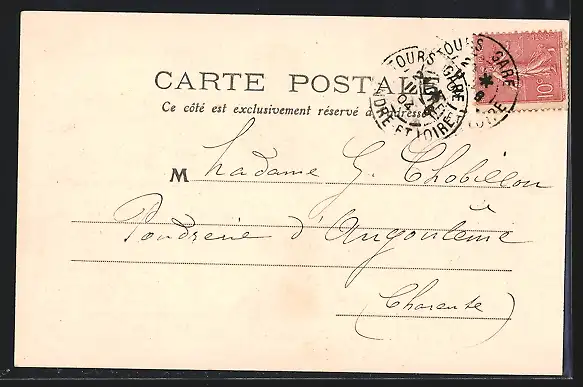 CARTE POSTALE
Ce côté est exclusivement réservé à l'adresse
TOURS GARE
INDRE ET LOIRE
04
TOURS GARE
LOIRE
10
Madame G. Chobillon
Poudrerie d'Angoulême
(Charente)